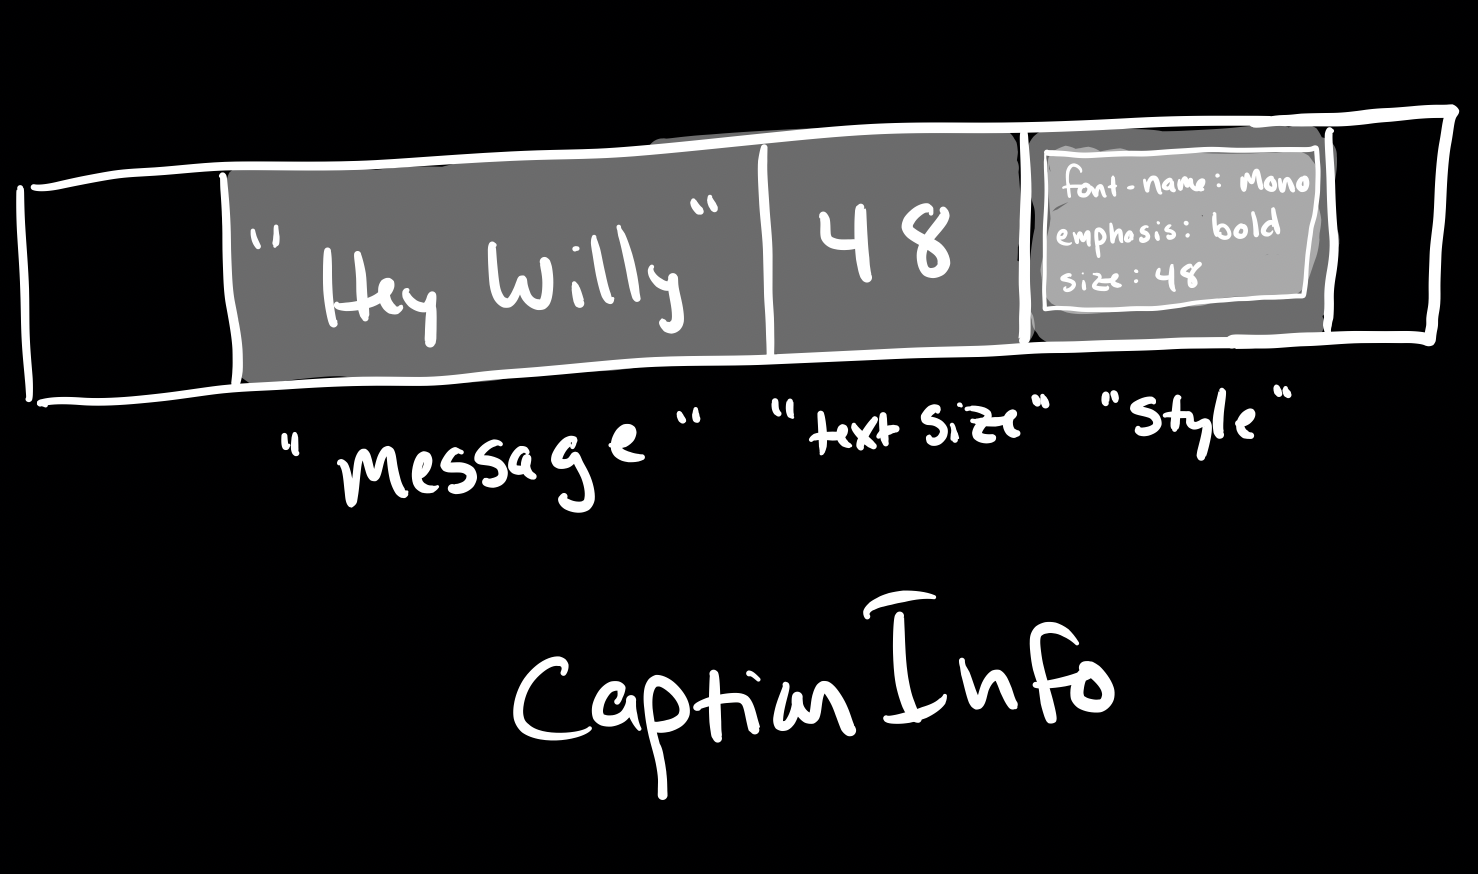 "Hey Willy"
48
font-name: Mono
emphasis: bold
size: 48
"message" "text size" "style"
CaptionInfo